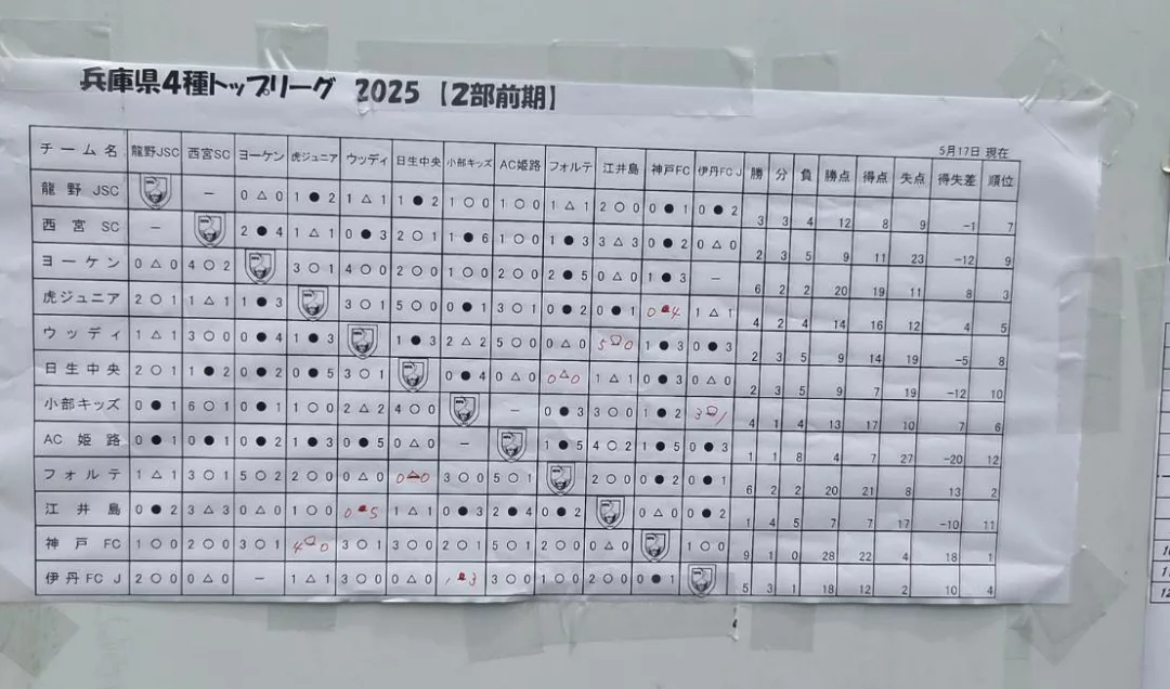 兵庫県4種トップリーグ 2025 【2部前期】
5月17日 現在
チーム名 龍野JSC 西宮SC ヨーケン 虎ジュニア ウッディ 日生中央 小部キッズ AC姫路 フォルテ 江井島 神戸FC 伊丹FC J 勝 分 負 勝点 得点 失点 得失差 順位
龍野 JSC － 0 △ 0 1 ● 2 1 △ 1 1 ● 2 1 ○ 0 1 ○ 0 1 △ 1 2 ○ 0 0 ● 1 0 ● 2 3 3 4 12 8 9 −1 7
西宮 SC － 2 ● 4 1 △ 1 0 ● 3 2 ○ 1 1 ● 6 1 ○ 0 1 ● 3 3 △ 3 0 ● 2 0 △ 0 2 3 5 9 11 23 −12 9
ヨーケン 0 △ 0 4 ○ 2 3 ○ 1 4 ○ 0 2 ○ 0 1 ○ 0 2 ○ 0 2 ● 5 0 △ 0 1 ● 3 － 6 2 2 20 19 11 8 3
虎ジュニア 2 ○ 1 1 △ 1 1 ● 3 3 ○ 1 5 ○ 0 0 ● 1 3 ○ 1 0 ● 2 0 ● 1 0 ● 4 1 △ 1 4 2 4 14 16 12 4 5
ウッディ 1 △ 1 3 ○ 0 0 ● 4 1 ● 3 1 ● 3 2 △ 2 5 ○ 0 0 △ 0 5 ○ 0 1 ● 3 0 ● 3 2 3 5 9 14 19 −5 8
日生中央 2 ○ 1 1 ● 2 0 ● 2 0 ● 5 3 ○ 1 0 ● 4 0 △ 0 0 △ 0 1 △ 1 0 ● 3 0 △ 0 2 3 5 9 7 19 −12 10
小部キッズ 0 ● 1 6 ○ 1 0 ● 1 1 ○ 0 2 △ 2 4 ○ 0 － 0 ● 3 3 ○ 0 1 ● 2 3 ○ 1 4 1 4 13 17 10 7 6
AC 姫路 0 ● 1 0 ● 1 0 ● 2 1 ● 3 0 ● 5 0 △ 0 － 1 ● 5 4 ○ 2 1 ● 5 0 ● 3 1 1 8 4 7 27 −20 12
フォルテ 1 △ 1 3 ○ 1 5 ○ 2 2 ○ 0 0 △ 0 0 △ 0 3 ○ 0 5 ○ 1 2 ○ 0 0 ● 2 0 ● 1 6 2 2 20 21 8 13 2
江井島 0 ● 2 3 △ 3 0 △ 0 1 ○ 0 0 ● 5 1 △ 1 0 ● 3 2 ● 4 0 ● 2 0 △ 0 0 ● 2 1 4 5 7 7 17 −10 11
神戸 FC 1 ○ 0 2 ○ 0 3 ○ 1 4 ○ 0 3 ○ 1 3 ○ 0 2 ○ 1 5 ○ 1 2 ○ 0 0 △ 0 1 ○ 0 9 1 0 28 22 4 18 1
伊丹FC J 2 ○ 0 0 △ 0 － 1 △ 1 3 ○ 0 0 △ 0 1 ● 3 3 ○ 0 1 ○ 0 2 ○ 0 0 ● 1 5 3 1 18 12 2 10 4